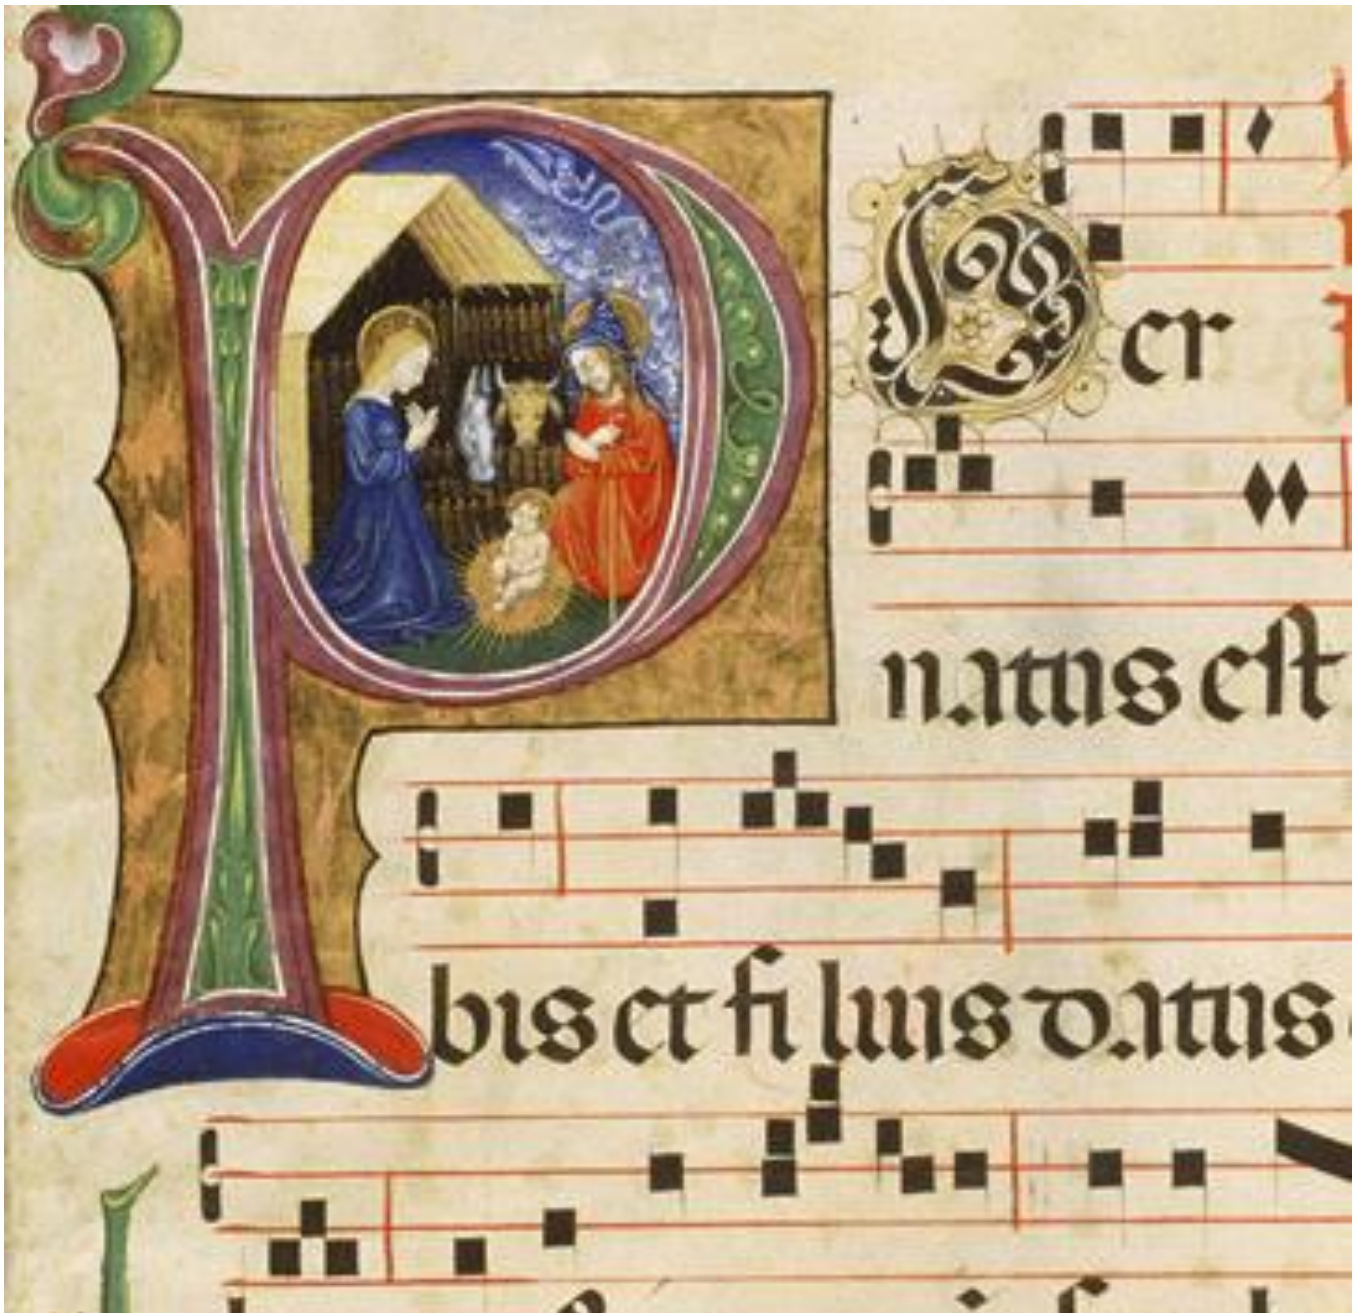 PUer
natus est
bis et fi lius datus